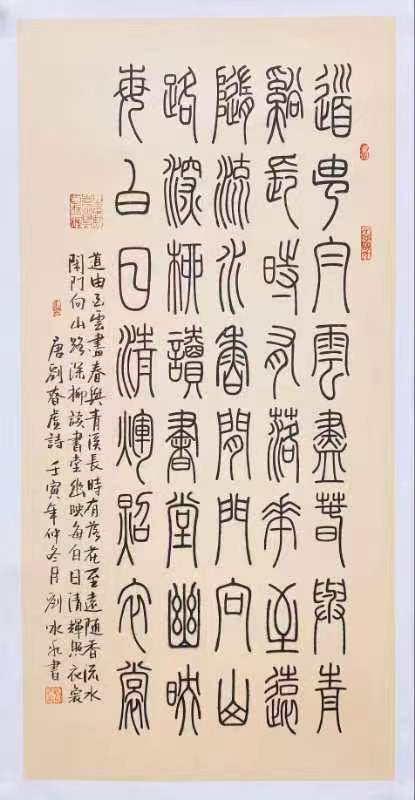 道由雲盡春與青
谿長時有落花至遠
隨流水香閒門向山
路深柳讀書堂幽映
每白日清輝照衣裳
道由雲盡春與青溪長時有落花至遠随香流水
閑門向山路深柳書堂幽映每白日清輝照衣裳
唐劉春虛詩 壬寅年仲冬月劉水書